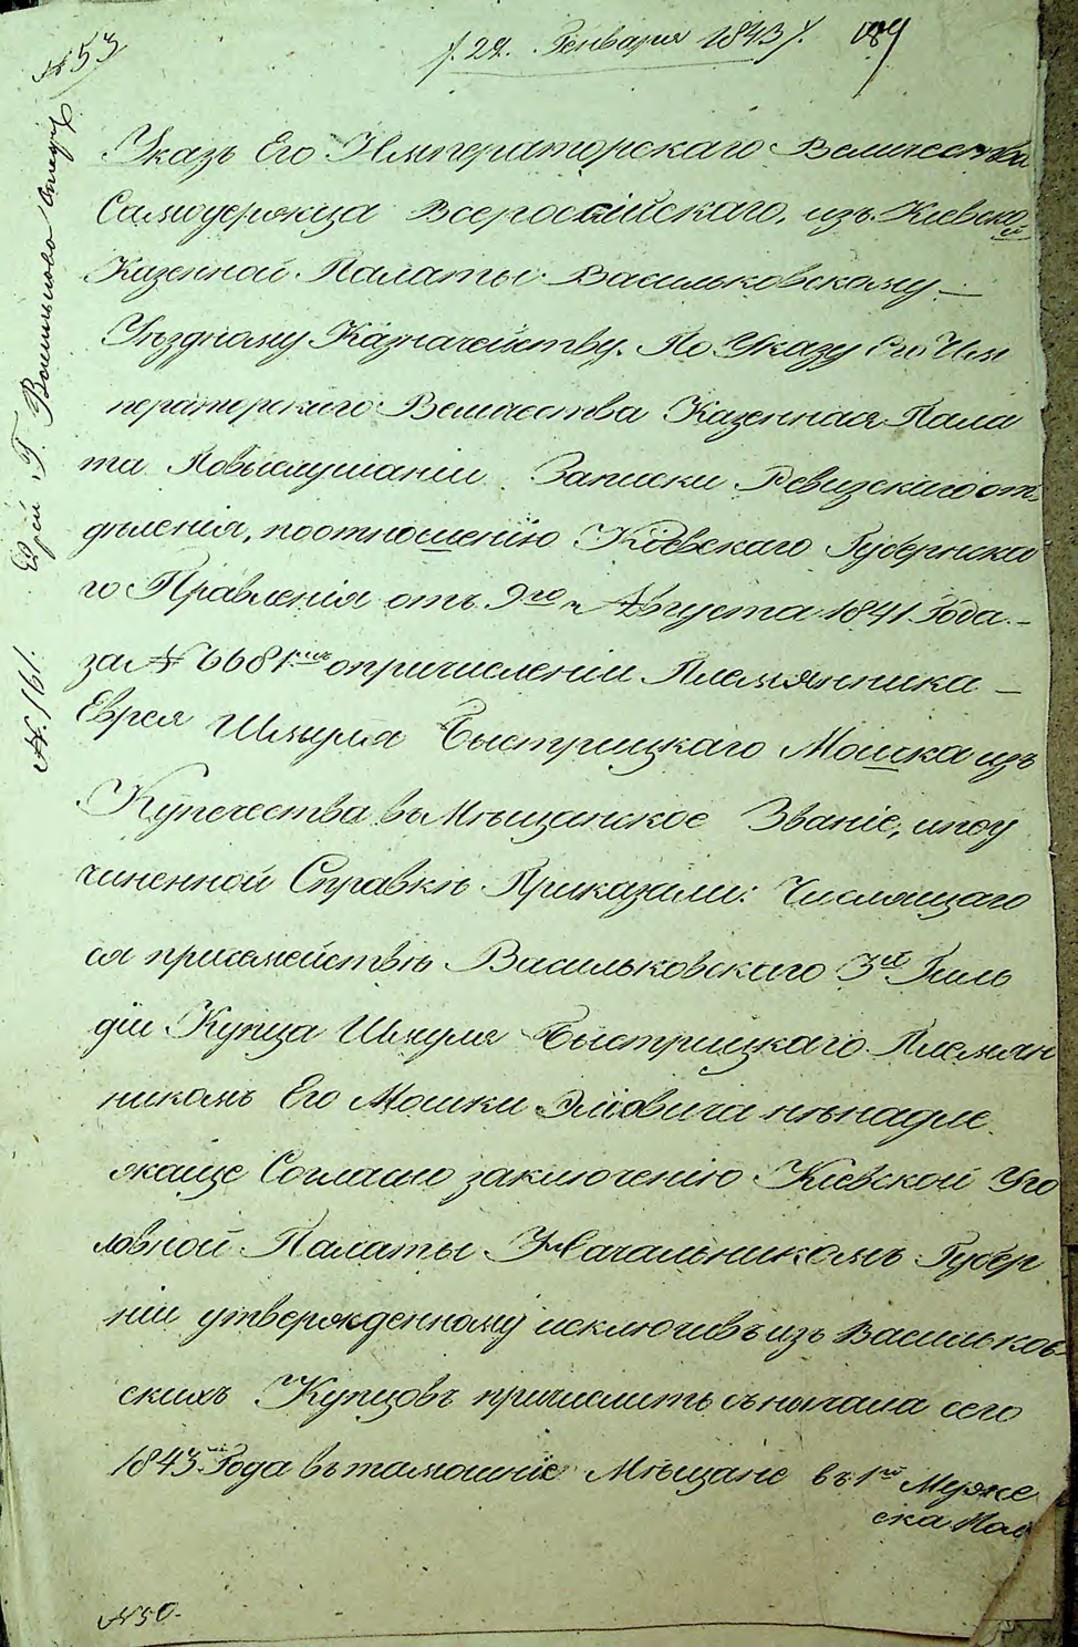 № 53
/. 22. Генваря 1843 /. 189
Указъ Его Императорскаго Величества
Самодержца Всероссійскаго, изъ Кіевско
й
Казенной Палаты Васильковскому —
Уѣздному Казначейству. По Указу Его Им
ператорскаго Величества Казенная Пала
та Повыслушаніи Записки Ревизскаго от
дѣленія, поотношенію Кіевскаго Губернска
го Правленія отъ 9го Августа 1841 Года —
за № 6681мъ опричисленіи Племянника —
Еврея Шмуля Быстрицкаго Мошка изъ
Купечества въ Мѣщанское Званіе, ипоу
чиненной Справкѣ Приказали: Числящаго
ся присемействѣ Васильковскаго 3й Гиль
діи Купца Шмуля Быстрицкаго Племян
никомъ Его Мошки нѣнадле
жаще Согласно заключенію Кіевской Уго
ловной Палаты Начальникомъ Губер
ніи утвержденному исключивъ изъ Васильков
скихъ Купцовъ причислить съ начала сего
1843 Года въ тамошніе Мѣщане въ 1й Муже
ска Пол
№ 50.
№ 161. Еврей Г. Василькова